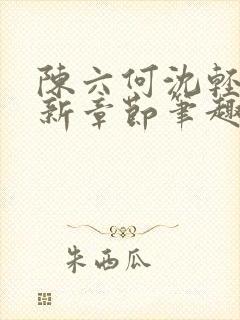 陳六何沈輕
新章節筆趣
朱西瓜